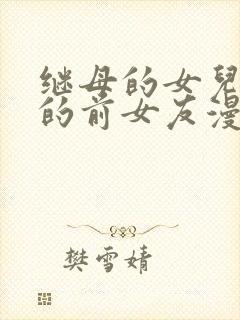 继母的女兒
的前女友漫
樊雪婧